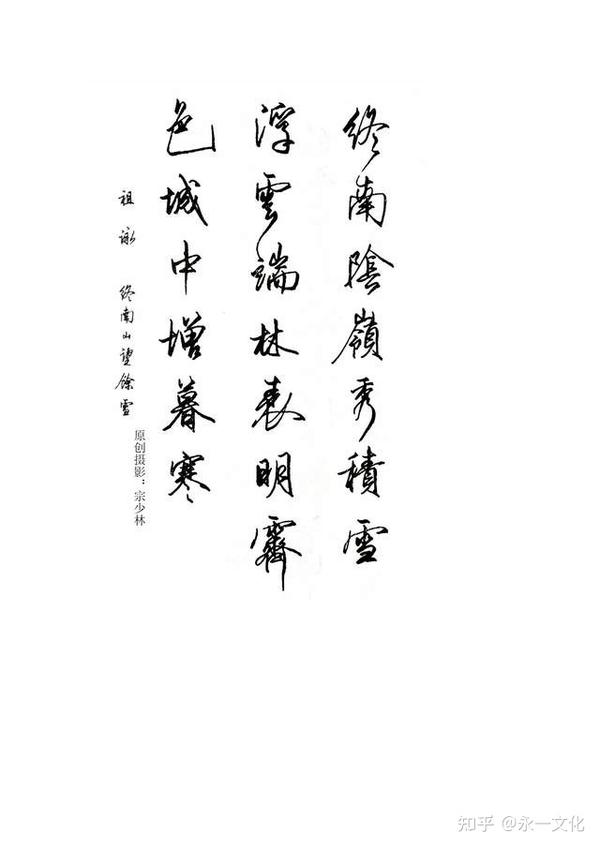 終南陰嶺秀積雪
浮雲端林表明霽
色城中增暮寒
祖詠 終南山望餘雪
原创摄影：宗少林
知乎 @永一文化